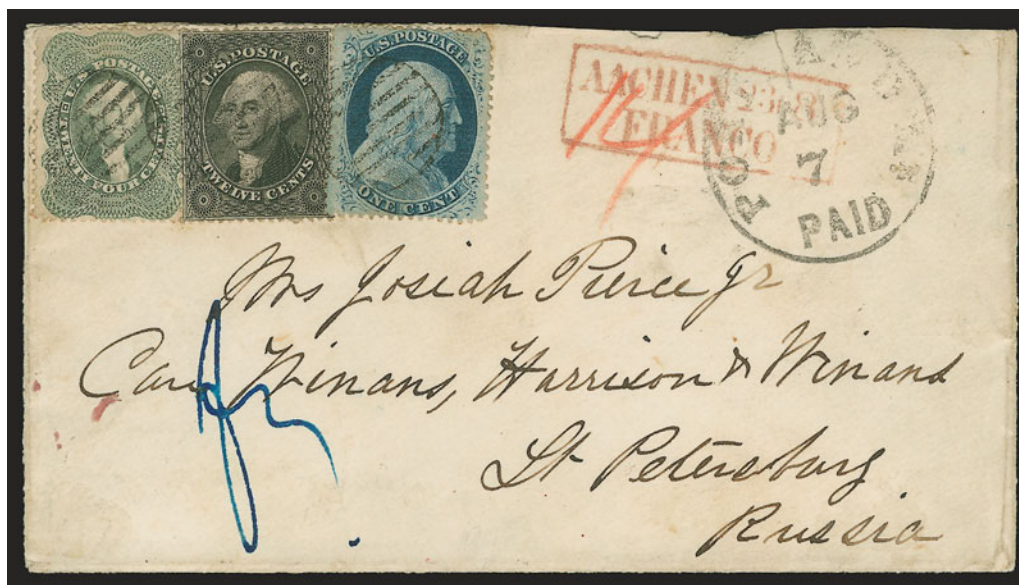 U.S. POSTAGE
TWENTY FOUR CENTS
U.S. POSTAGE
TWELVE CENTS
U.S. POSTAGE
ONE CENT
AACHEN 23 8
FRANCO
PORTLAND
AUG
7
PAID
Mrs Josiah Pierce Jr
Care Winans, Harrison & Winans
St Petersburg
Russia